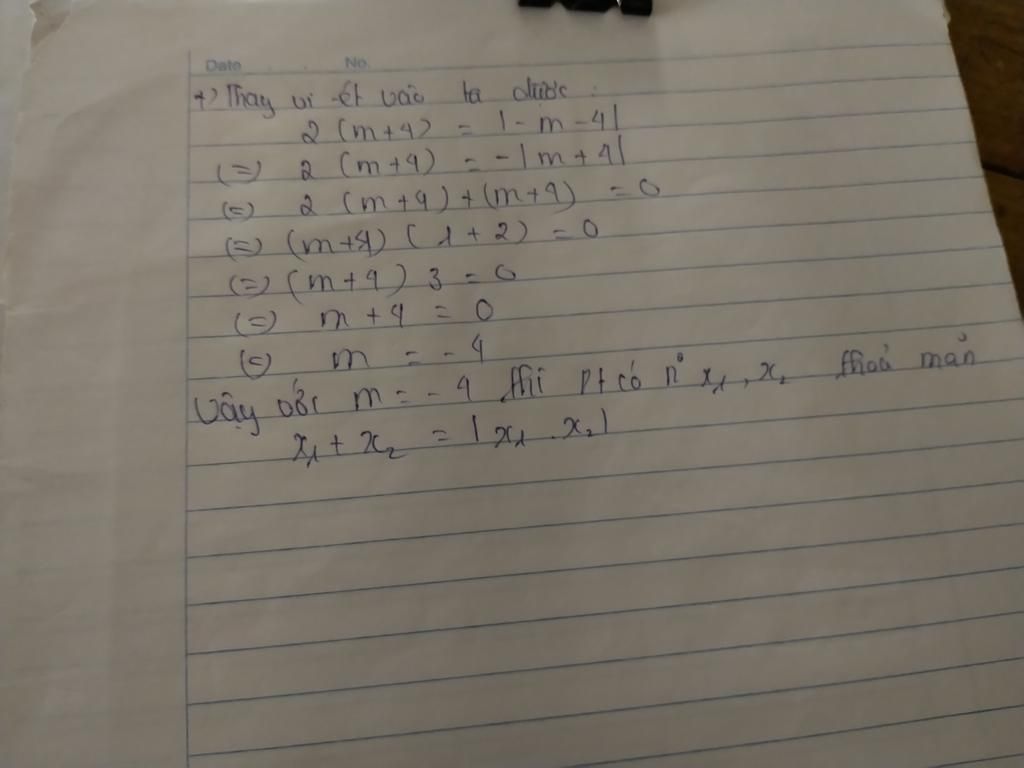 Date No.
+) Thay vi-ét vào ta được:
2 (m+4) = |-m-4|
(=) 2 (m+4) = -|m+4|
(=) 2 (m+4) + (m+4) = 0
(=) (m+4) (1+2) = 0
(=) (m+4) 3 = 0
(=) m + 4 = 0
(=) m = -4
Vậy với m = -4 thì pt có n° x₁, x₂ thoả mản
x₁ + x₂ = |x₁ . x₂|